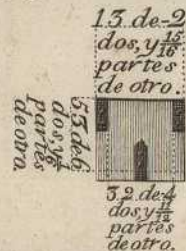 13. de-2
dos, y 15/16
partes
de otro.
53. de 6
dos, y 1/6
partes
de otro.
3 2. de 4
dos, y 11/12
partes
de otro.